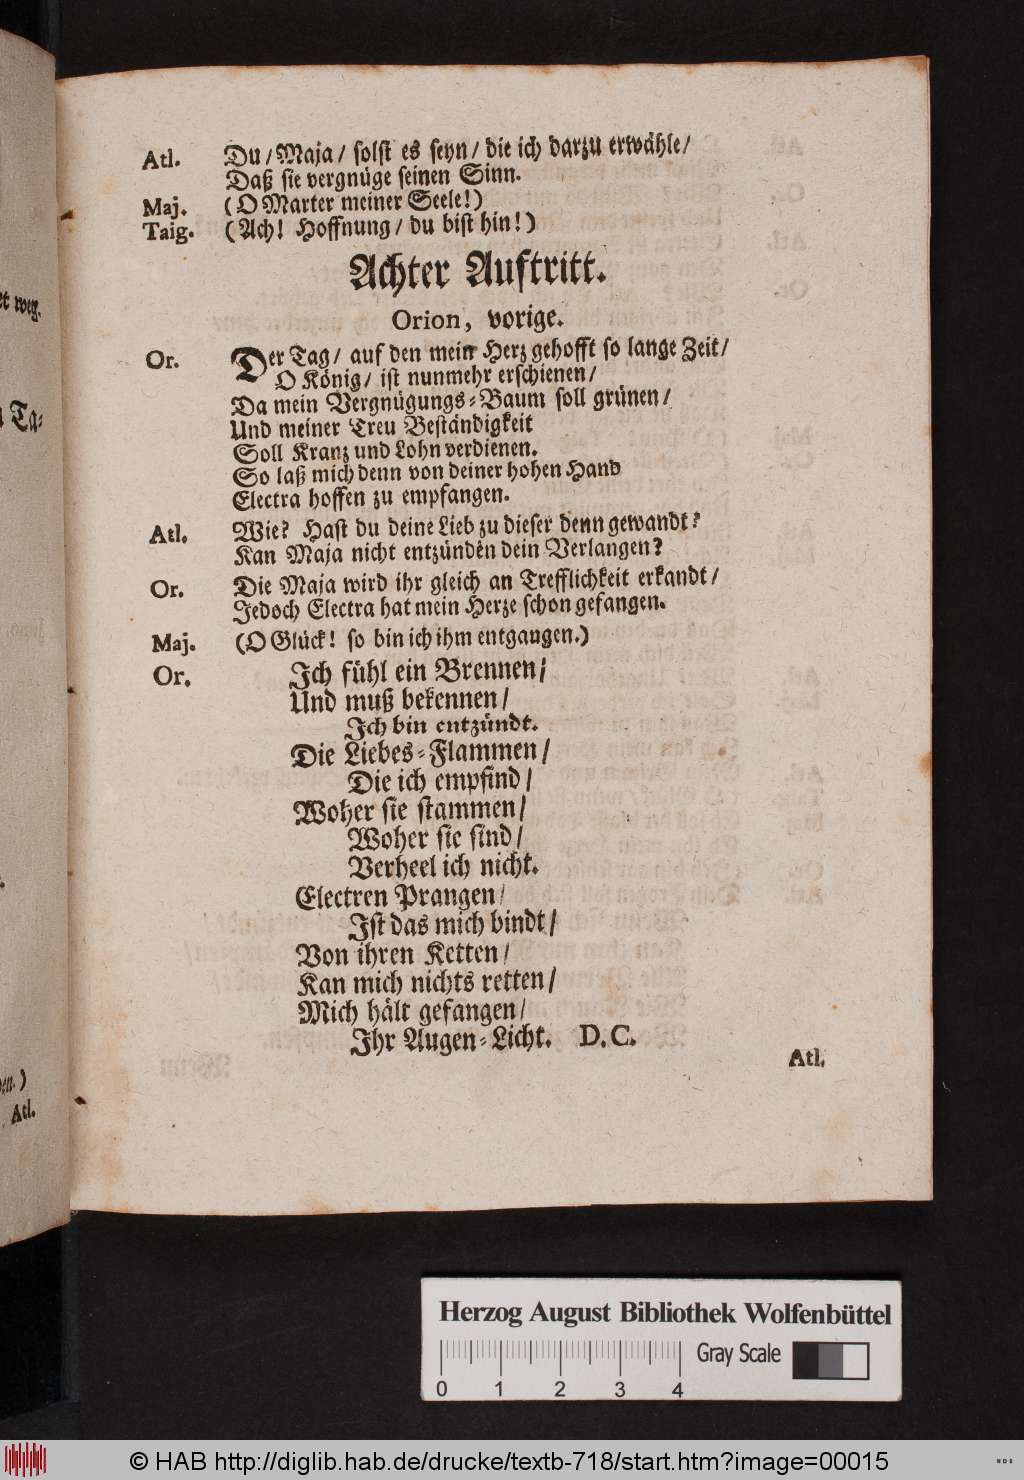 Atl. Du / Maja / solst es seyn / die ich darzu erwähle /
Daß sie vergnüge seinen Sinn.
Maj. ( O Marter meiner Seele! )
Taig. ( Ach! Hoffnung / du bist hin! )
Achter Auftritt.
Orion, vorige.
Or. Der Tag / auf den mein Herz gehofft so lange Zeit /
O König / ist nunmehr erschienen /
Da mein Vergnügungs-Baum soll grünen /
Und meiner Treu Beständigkeit
Soll Kranz und Lohn verdienen.
So laß mich denn von deiner hohen Hand
Electra hoffen zu empfangen.
Atl. Wie? Hast du deine Lieb zu dieser denn gewandt?
Kan Maja nicht entzünden dein Verlangen?
Or. Die Maja wird ihr gleich an Trefflichkeit erkandt /
Jedoch Electra hat mein Herze schon gefangen.
Maj. (O Glück! so bin ich ihm entgaugen.)
Or. Ich fühl ein Brennen /
Und muß bekennen /
Ich bin entzündt.
Die Liebes-Flammen /
Die ich empfind /
Woher sie stammen /
Woher sie sind /
Verheel ich nicht.
Electren Prangen /
Ist das mich bindt /
Von ihren Ketten /
Kan mich nichts retten /
Mich hält gefangen /
Ihr Augen-Licht. D. C.
Atl.
et weg.
Ta-
en. )
Atl.
Herzog August Bibliothek Wolfenbüttel
Gray Scale
0 1 2 3 4
© HAB http://diglib.hab.de/drucke/textb-718/start.htm?image=00015